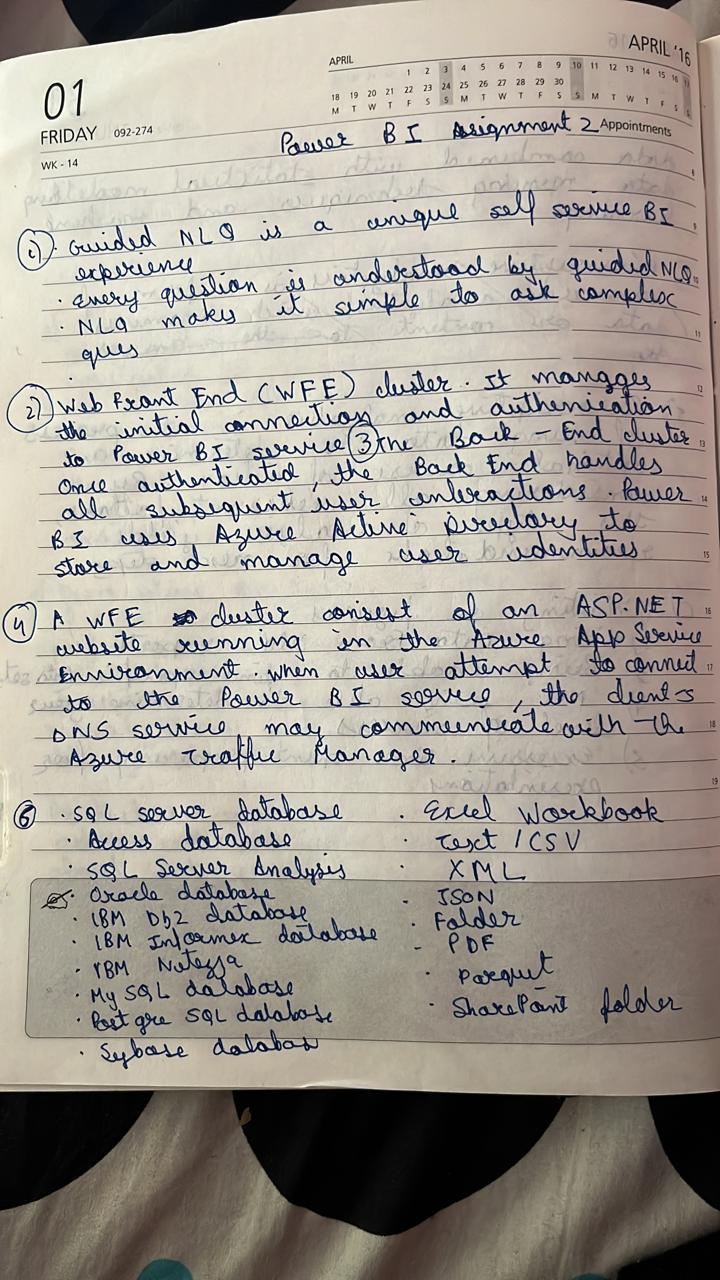 APRIL '16
APRIL
1 2 3 4 5 6 7 8 9 10 11 12 13 14 15 16 17
18 19 20 21 22 23 24 25 26 27 28 29 30
M T W T F S S M T W T F S S M T W T F S S
01
FRIDAY 092-274
WK - 14
Power BI Assignment 2 Appointments
1) · Guided NLQ is a unique self service BI
experience
· Every question is understood by guided NLQ
· NLQ makes it simple to ask complex
ques
·
2) Web Front End (WFE) cluster. It manages
the initial connection and authentication
to Power BI service 3 The Back - End cluster
Once authenticated, the Back End handles
all subsequent user interactions. Power
BI uses Azure Active Directory to
store and manage user identities
4 A WFE cluster consist of an ASP.NET
website running in the Azure App Service
Environment. when user attempt to connect
to the Power BI service, the client's
DNS service may communicate with the
Azure Traffic Manager.
6 · SQL server database · Excel Workbook
· Access database · Text / CSV
· SQL Server Analysis · XML
· Oracle database · JSON
· IBM Db2 database · Folder
· IBM Informex database - PDF
· IBM Netezza · Parquet
· My SQL database · SharePoint folder
· Post gre SQL database
· Sybase databas
8
9
10
11
12
13
14
15
16
17
18
19